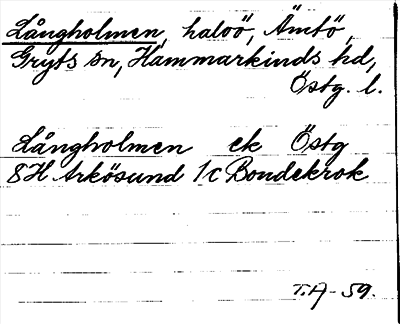 Långholmen, halvö, Ämtö,
Gryts sn, Hammarkinds hd,
Östg. l.
Långholmen ek Östg
8H Arkösund 1c Bondekrok
T.A-59.